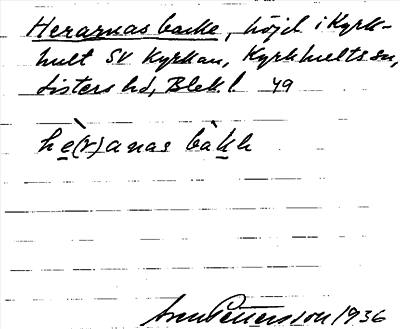 Herarnas backe, höjd i Kyrk-
hult SV Kyrkan, Kyrkhults sn,
Listers hd, Blek.l 49
hè(r)anas bàkh
Sven Pettersson 1936